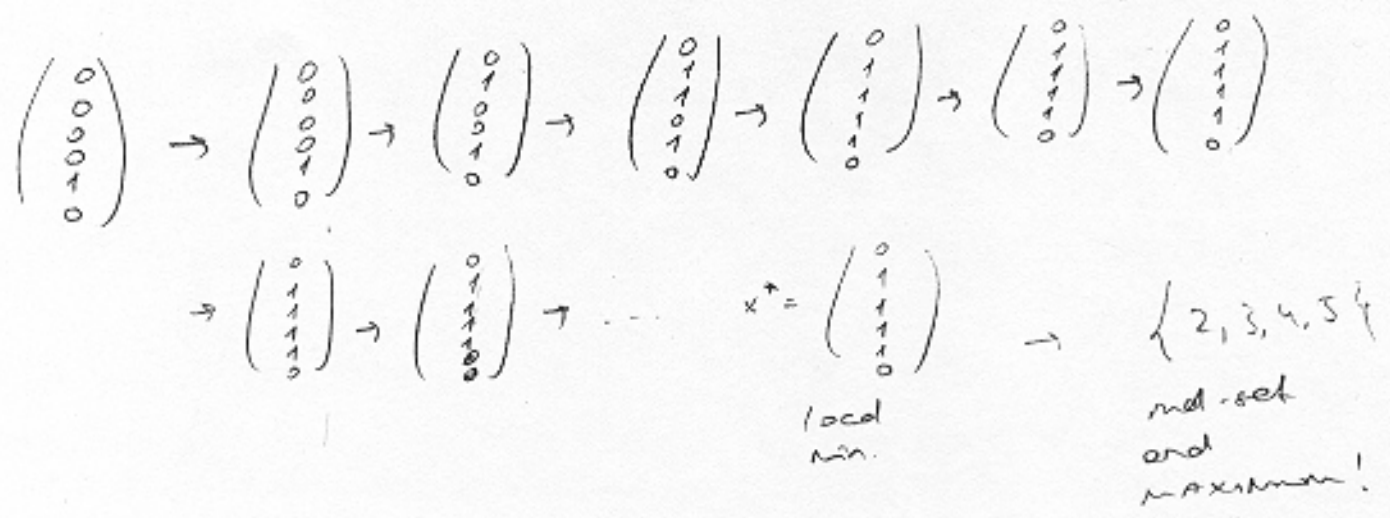 (0 0 0 0 1 0) → (0 0 0 0 1 0) → (0 1 0 0 1 0) → (0 1 1 0 1 0) → (0 1 1 1 1 0) → (0 1 1 1 1 0) → (0 1 1 1 1 0)
→ (0 1 1 1 1 0) → (0 1 1 1 1 0) → ..... x* = (0 1 1 1 1 0) → {2, 3, 4, 5}
local
min.
ind-set
and
MAXIMUM!